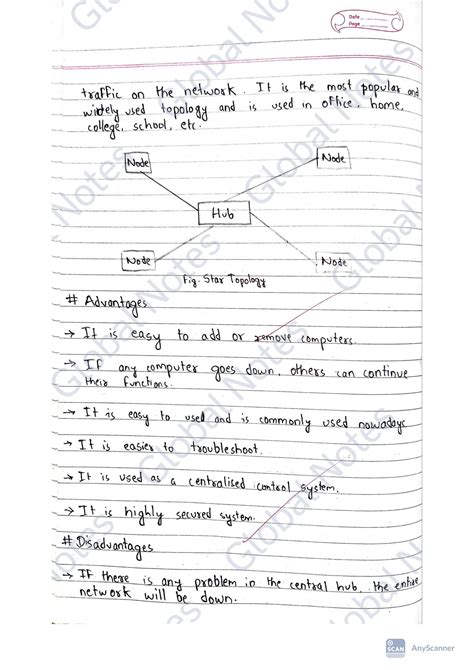 Date
Page
traffic on the network. It is the most popular and
widely used topology and is used in office, home,
college, school, etc.
Node
Node
Hub
Node
Node
Fig. Star Topology
# Advantages
→ It is easy to add or remove computers.
→ If any computer goes down, others can continue
their functions.
→ It is easy to used and is commonly used nowadays
→ It is easier to troubleshoot.
→ It is used as a centralised control system.
→ It is highly secured system.
# Disadvantages
→ If there is any problem in the central hub, the entire
network will be down.
Global Notes
Global Notes
Global Notes
Global Notes
SCAN
AnyScanner